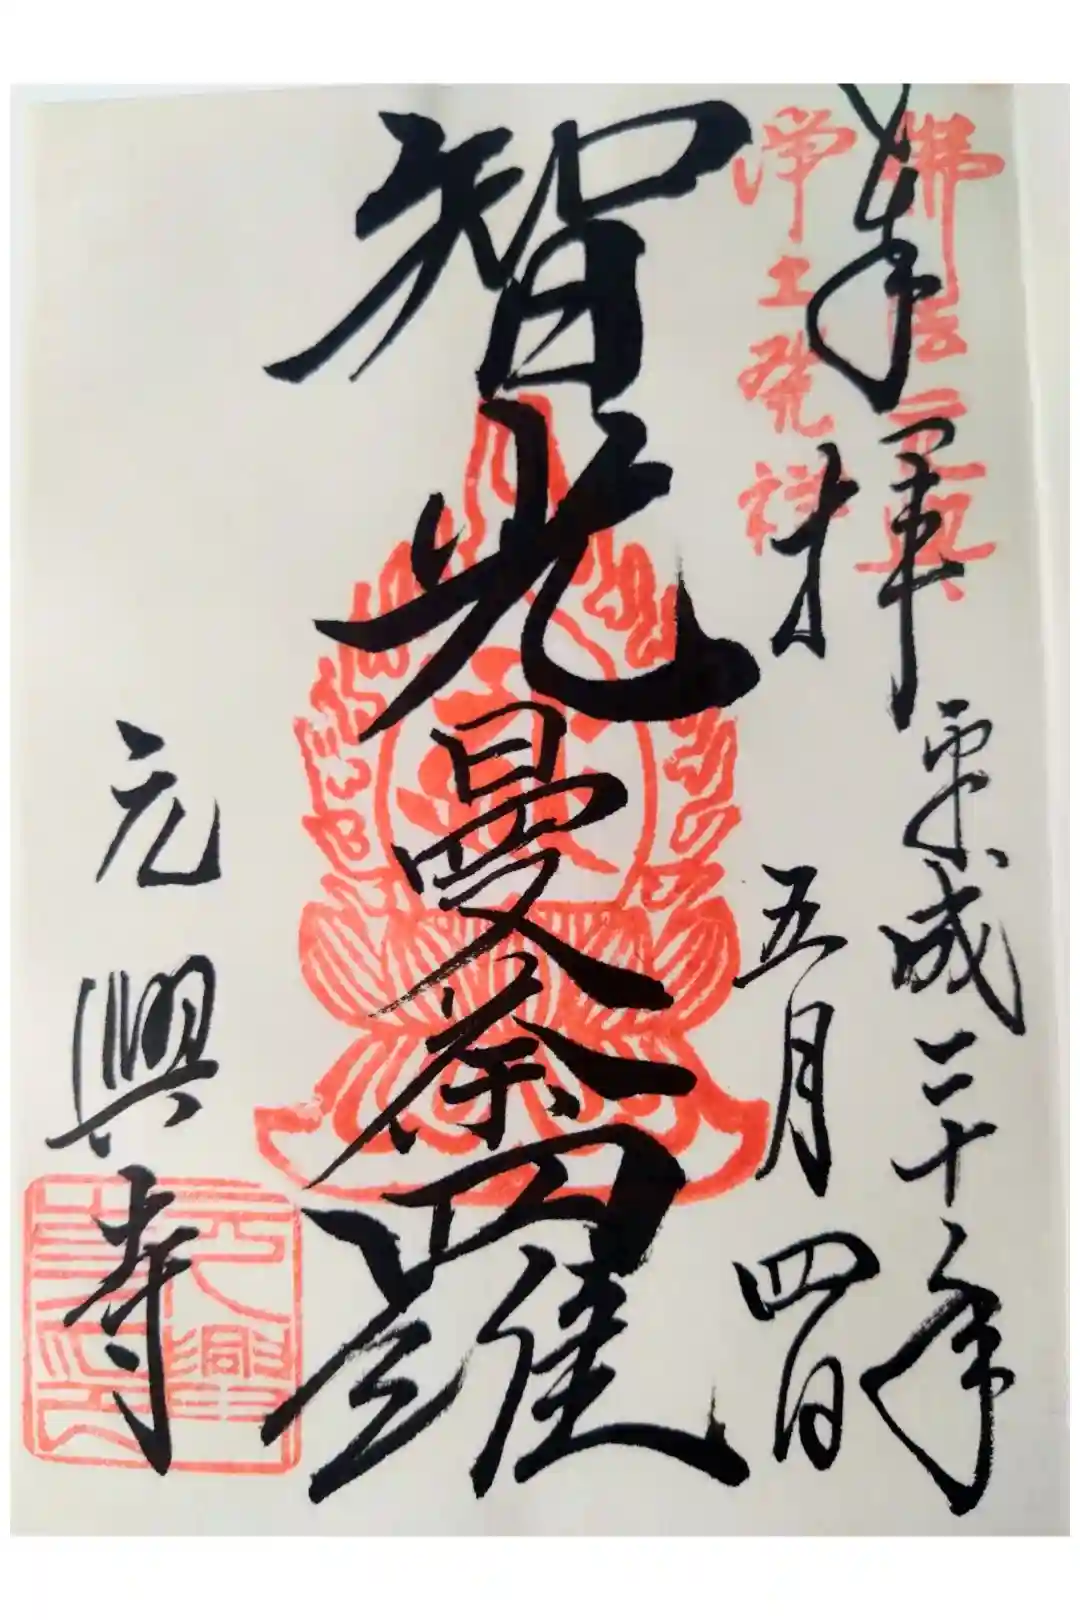 奉拝
佛法元興
浄土発祥
平成三十年
五月四日
智光曼荼羅
元興寺